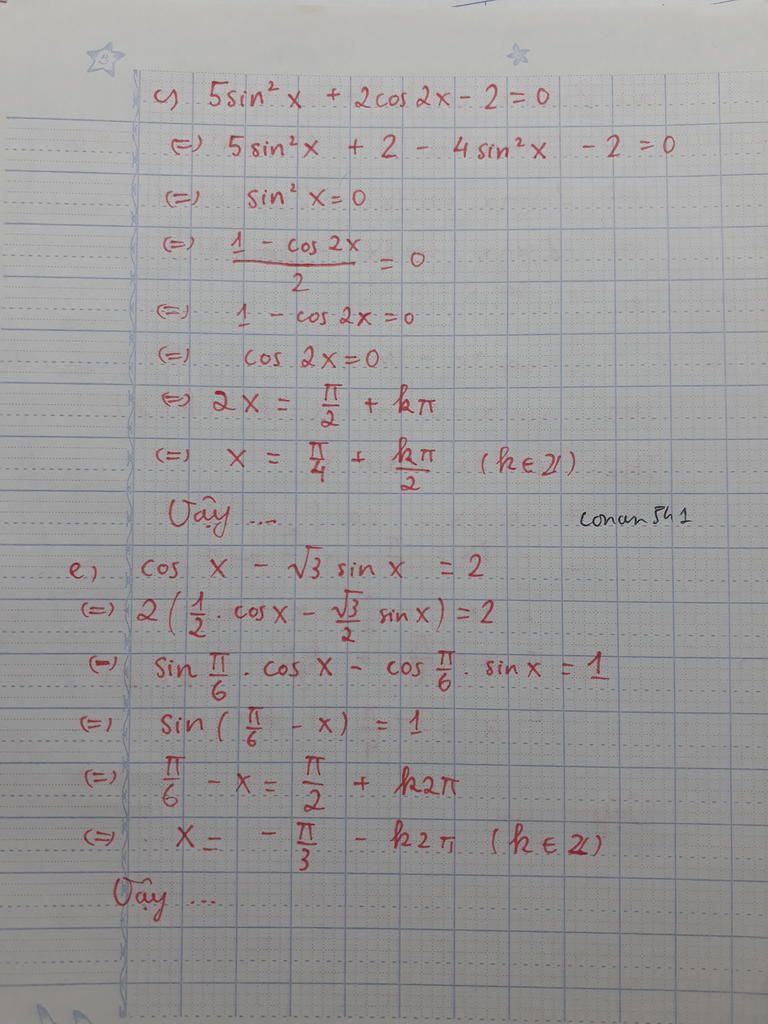 c) 5sin²x + 2cos 2x - 2 = 0
(=) 5sin²x + 2 - 4sin²x - 2 = 0
(=) sin² x = 0
(=) (1 - cos 2x)/2 = 0
(=) 1 - cos 2x = 0
(=) cos 2x = 0
(=) 2x = π/2 + kπ
(=) x = π/4 + kπ/2 (k ∈ Z)
Vậy ...
conan541
e) cos x - √3 sin x = 2
(=) 2(1/2 . cosx - √3/2 sinx) = 2
(=) sin π/6 . cos x - cos π/6 . sinx = 1
(=) sin(π/6 - x) = 1
(=) π/6 - x = π/2 + k2π
(=) x = - π/3 - k2π (k ∈ Z)
Vậy ...